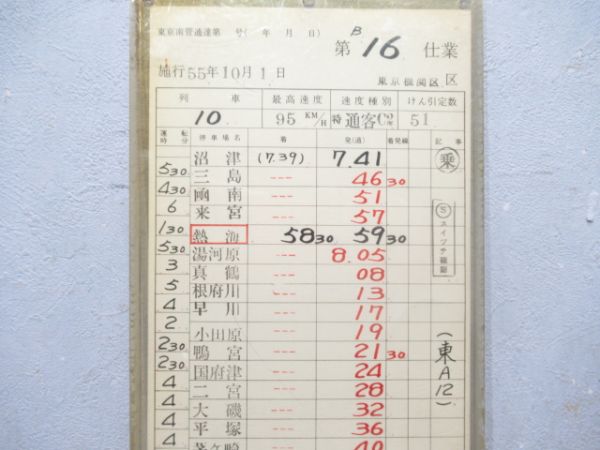 東京南管通達第 号( 年 月 日)
第 B16 仕業
施行 55年10月1日
東京機関区 区
列 車 最高速度 速度種別 けん引定数
10 95 KM/H 特 通客C2 51
運転時分 停車場名 着 発(通) 着発線 記事
沼津 (7.39) 7.41 乗
5 30
三島 --- 46 30
4 30
函南 --- 51
6
来宮 --- 57
1 30
熱海 58 30 59 30
5 30
湯河原 --- 8.05
3
真鶴 --- 08
5
根府川 --- 13
4
早川 --- 17
2
小田原 --- 19
2 30
鴨宮 --- 21 30
2 30
国府津 --- 24
4
二宮 --- 28
4
大磯 --- 32
4
平塚 --- 36
4
茅ヶ崎 --- 40
Ⓢスイッチ確認
(東A12)